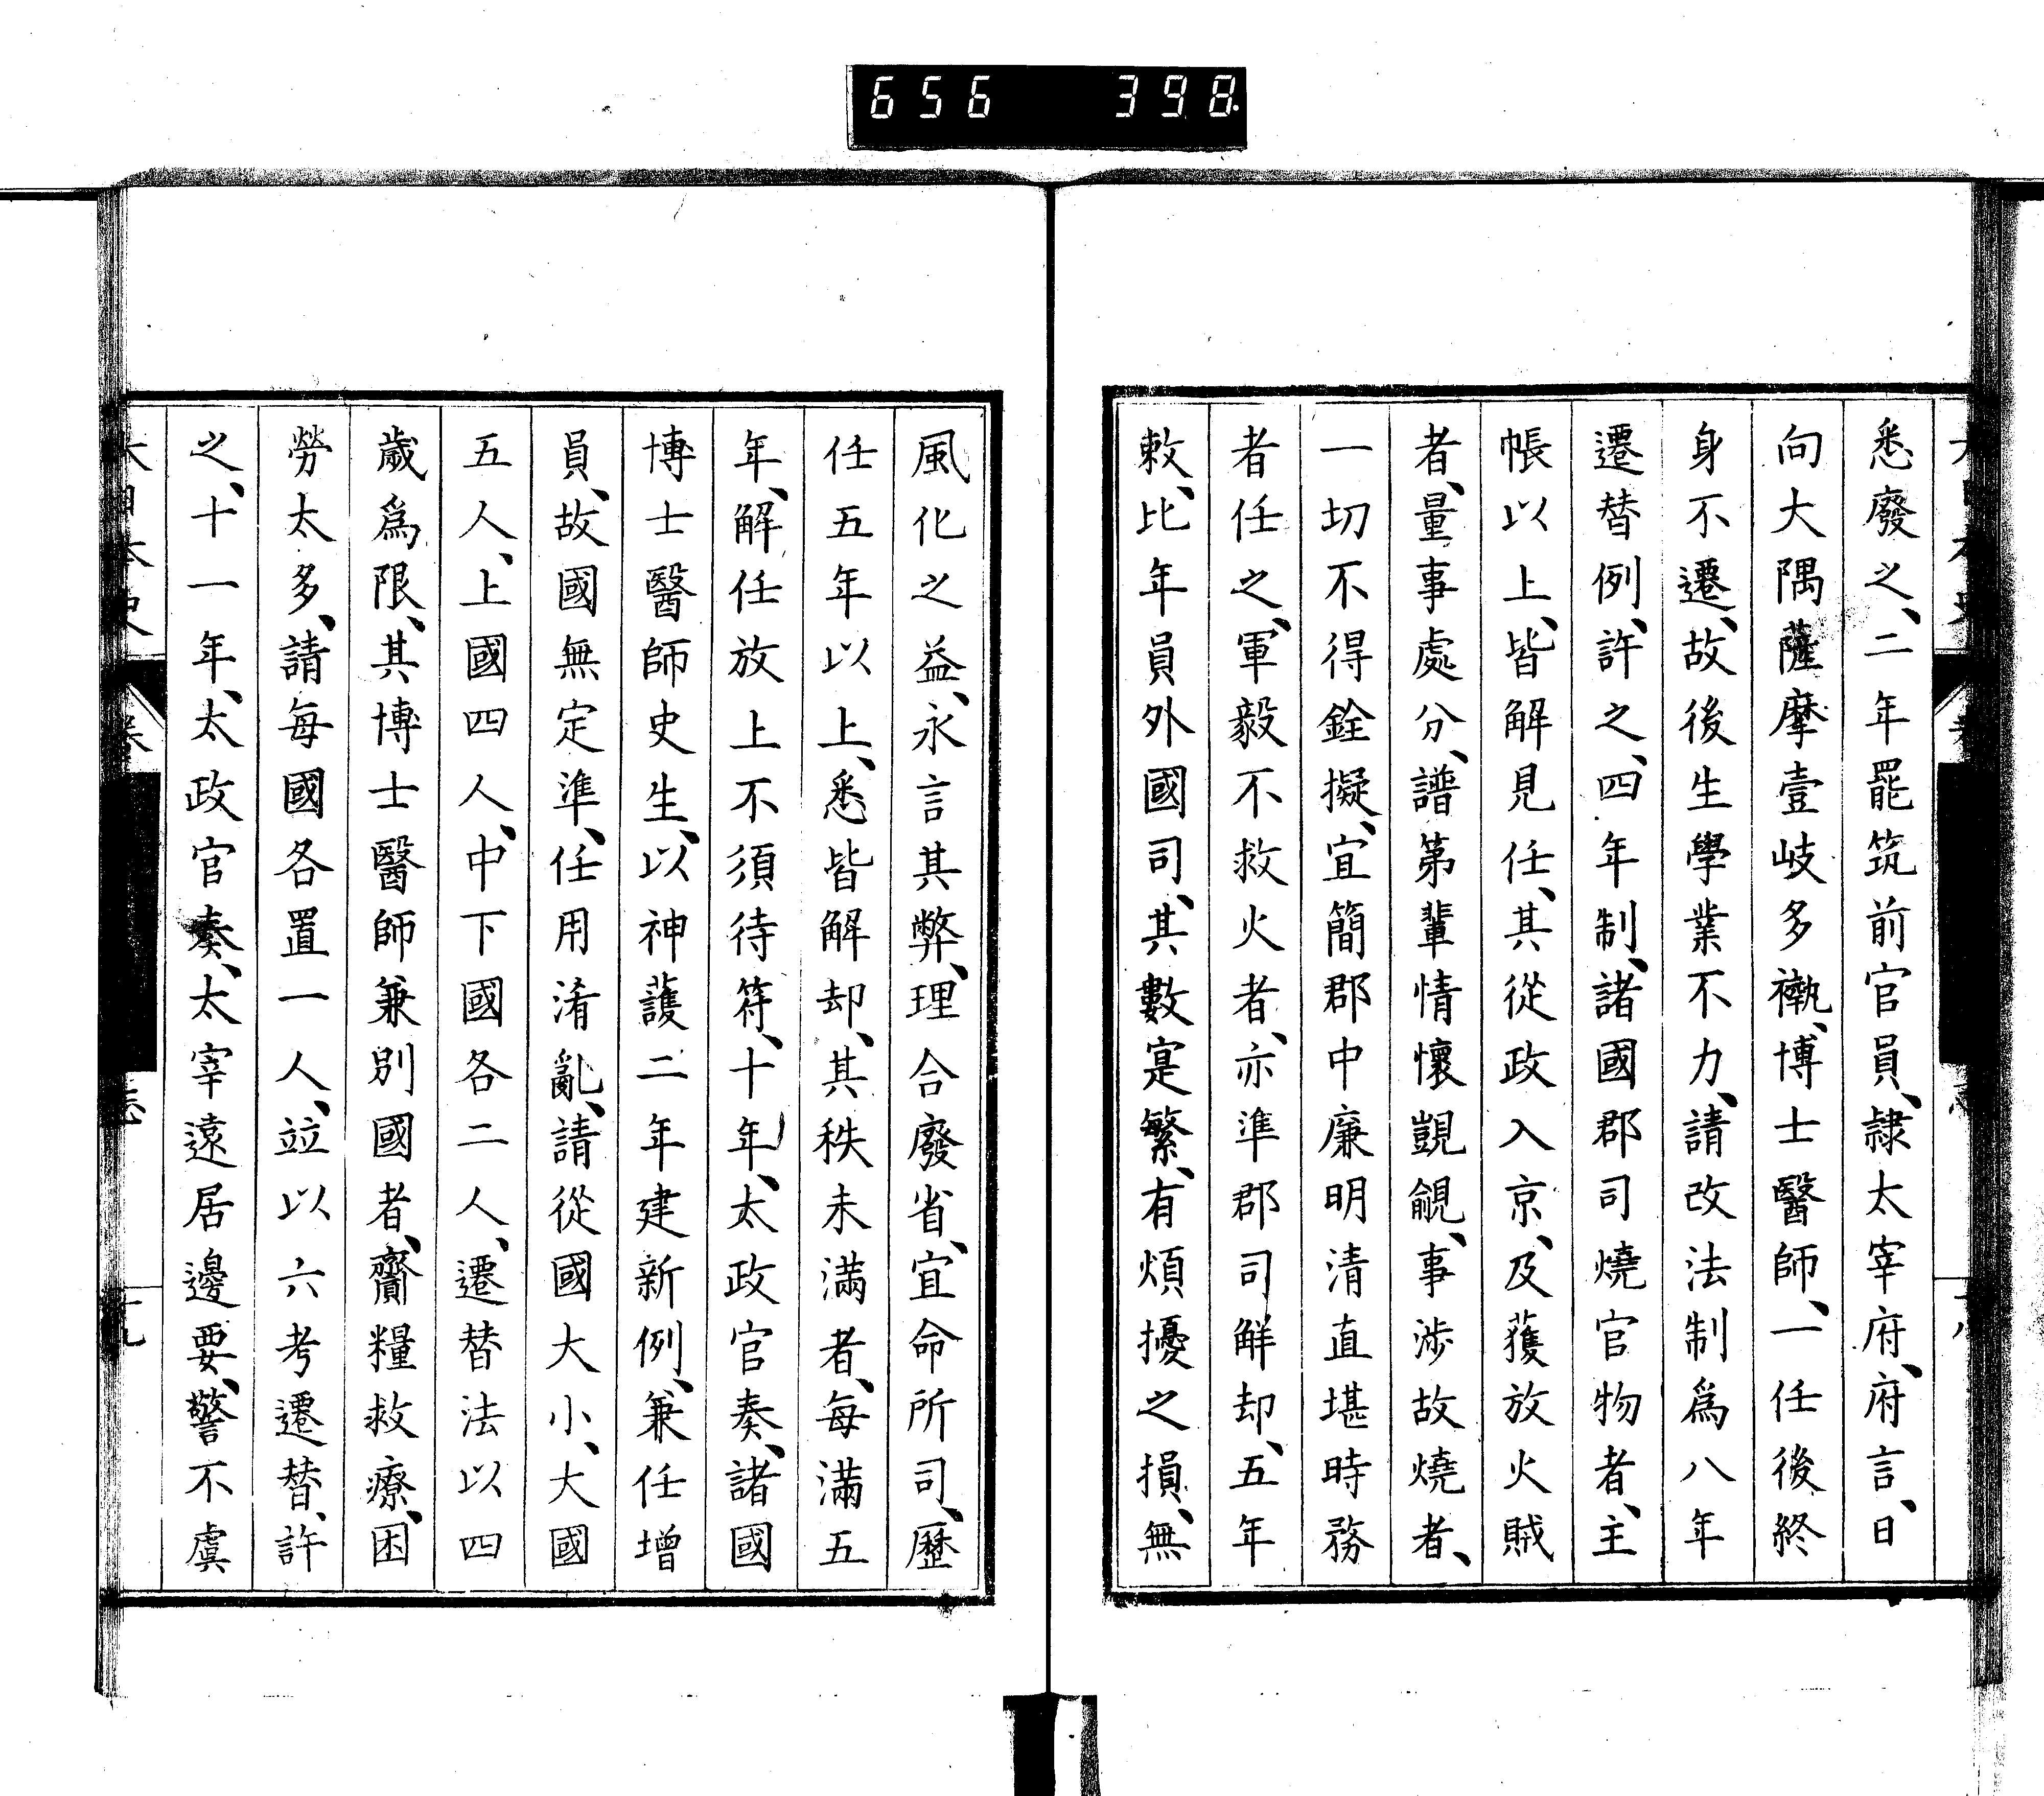 656 398
悉廢之、二年罷筑前官員、隷太宰府、府言、日
向大隅薩摩壹岐多褹、博士醫師、一任後終
身不遷、故後生學業不力、請改法制爲八年
遷替例、許之、四年制、諸國郡司燒官物者、主
帳以上、皆解見任、其從政入京、及獲放火賊
者、量事處分、譜第輩情懷覬覦、事渉故燒者、
一切不得銓擬、宜簡郡中廉明清直堪時務
者任之、軍毅不救火者、亦準郡司解却、五年
敕、比年員外國司、其數寔繁、有煩擾之損、無
風化之益、永言其弊、理合廢省、宜命所司、歷
任五年以上、悉皆解却、其秩未滿者、每滿五
年、解任放上不須待符、十年、太政官奏、諸國
博士醫師史生、以神護二年建新例、兼任增
員、故國無定準、任用淆亂、請從國大小、大國
五人、上國四人、中下國各二人、遷替法以四
歲爲限、其博士醫師兼別國者、齎糧救療、困
勞太多、請每國各置一人、竝以六考遷替、許
之、十一年、太政官奏、太宰遠居邊要、警不虞
大日本史
志
十九